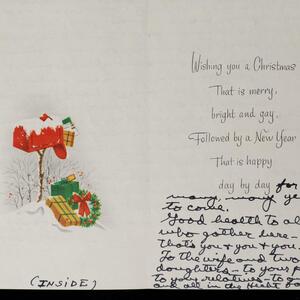 Wishing you a Christmas
That is merry,
bright and gay,
Followed by a New Year
That is happy
day by day for
many, many ye
to come.
Good health to al
who gather here-
that's you & you & you.
To the wife and two
daughters - to your p
to your relatives - to
and all in the
(INSIDE)